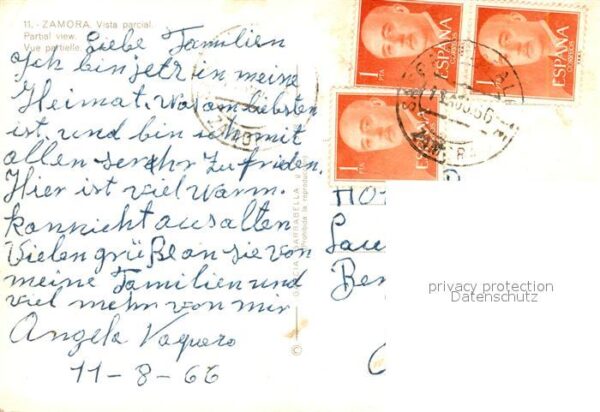 11. - ZAMORA. Vista parcial.
Partial view.
Vue partielle.
Liebe Familien
Ich bin jetz in meine
Heimat. Wo am liebsten
ist. und bin ich mit
allen sehr zufriden.
Hier ist viel warm.
kan nicht aus alten
Vielen grüße an sie von
meine Familien und
viel mehr von mir
Angela Vaquero
11-8-66
GARCIA GARRABELLA
Prohibida la reproducción
1 PTA
ESPAÑA
CORREOS
1 PTA
ESPAÑA
CORREOS
1 PTA
ESPAÑA
ZAMORA
Ho
Lau
Ber
privacy protection
Datenschutz